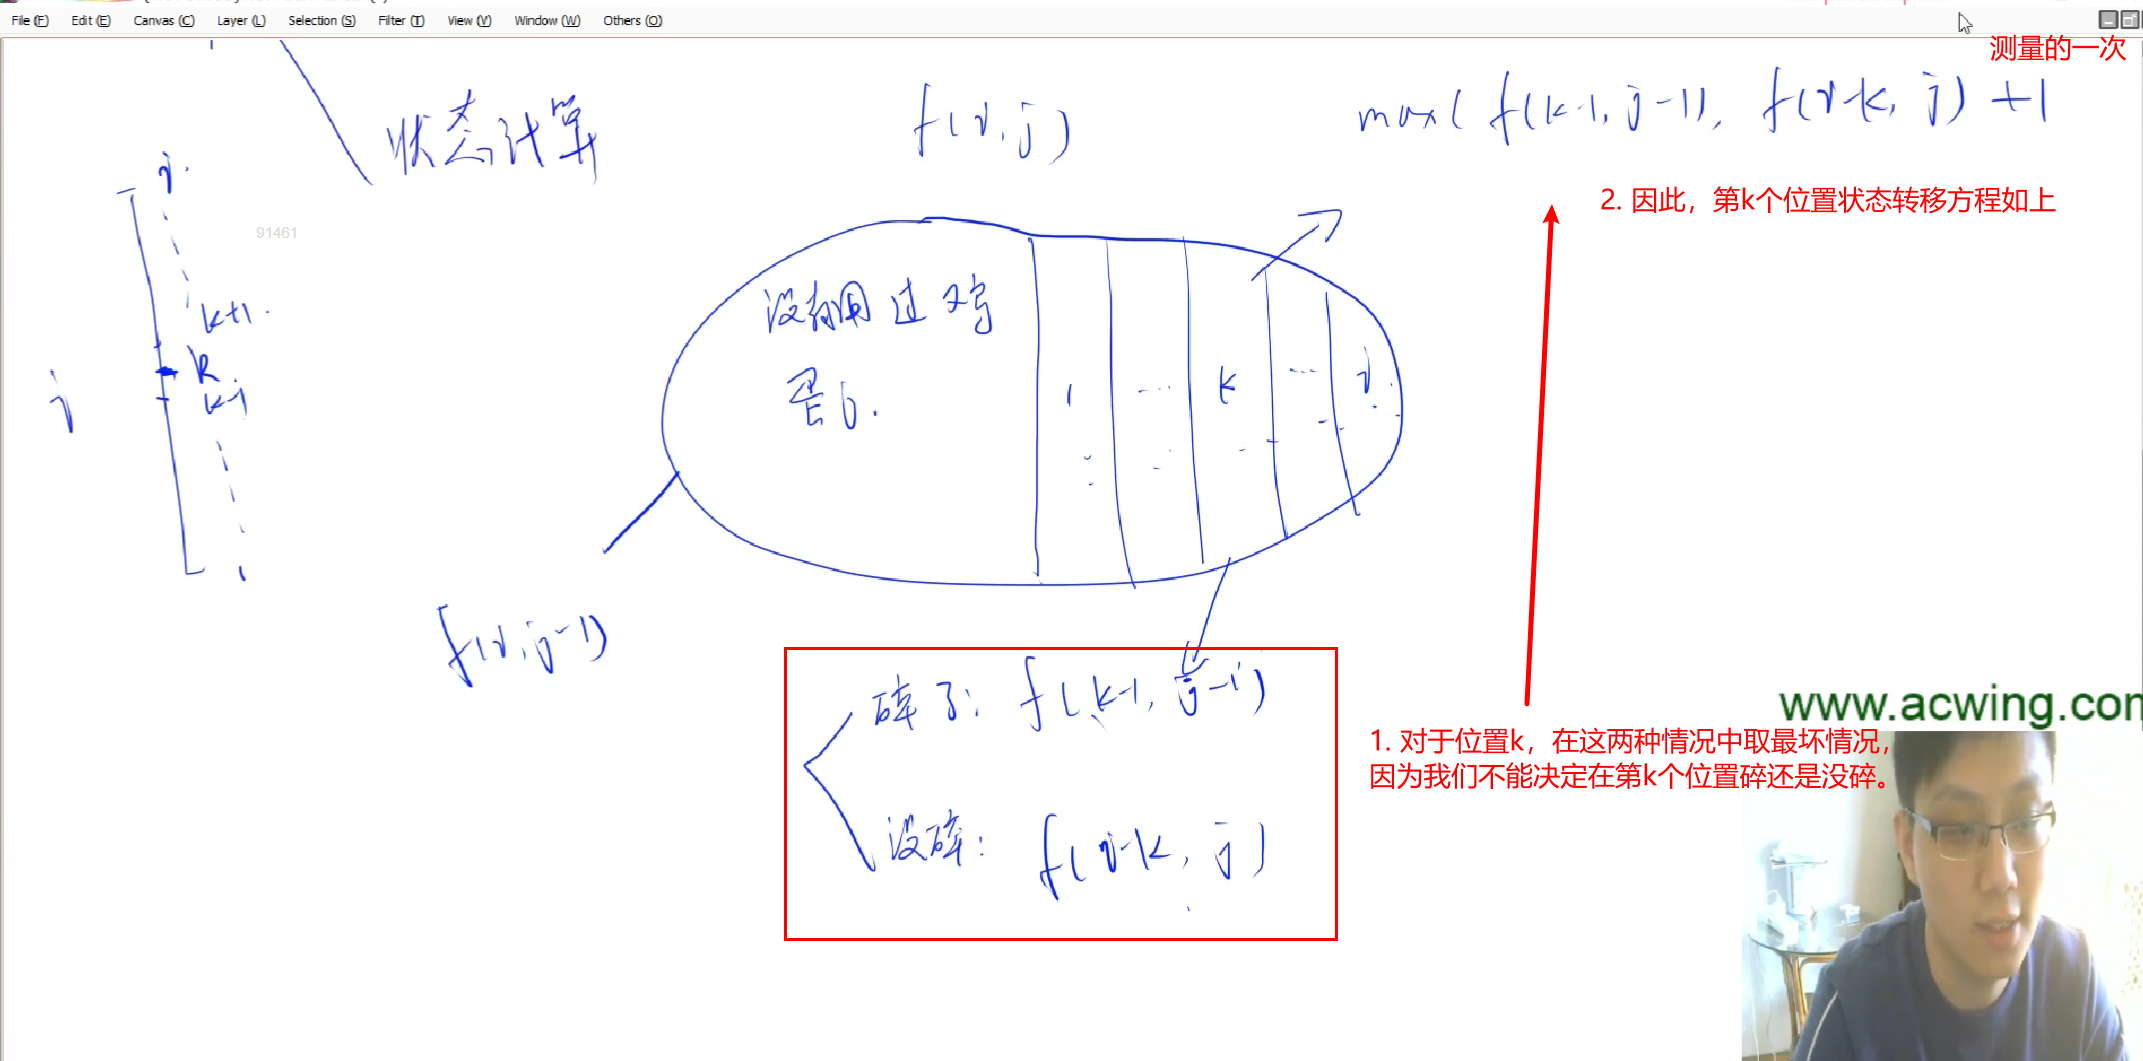 File (F) Edit (E) Canvas (C) Layer (L) Selection (S) Filter (T) View (V) Window (W) Others (O)
测量的一次
状态计算
f(i,j)
max( f(k-1, j-1), f(i-k, j) +1
2. 因此，第k个位置状态转移方程如上
i
91461
k+1
k
k-1
i
1
没有用过鸡
蛋j.
1 ... k ... i
f(i, j-1)
碎了: f(k-1, j-1)
没碎: f(i-k, j)
www.acwing.com
1. 对于位置k，在这两种情况中取最坏情况，
因为我们不能决定在第k个位置碎还是没碎。